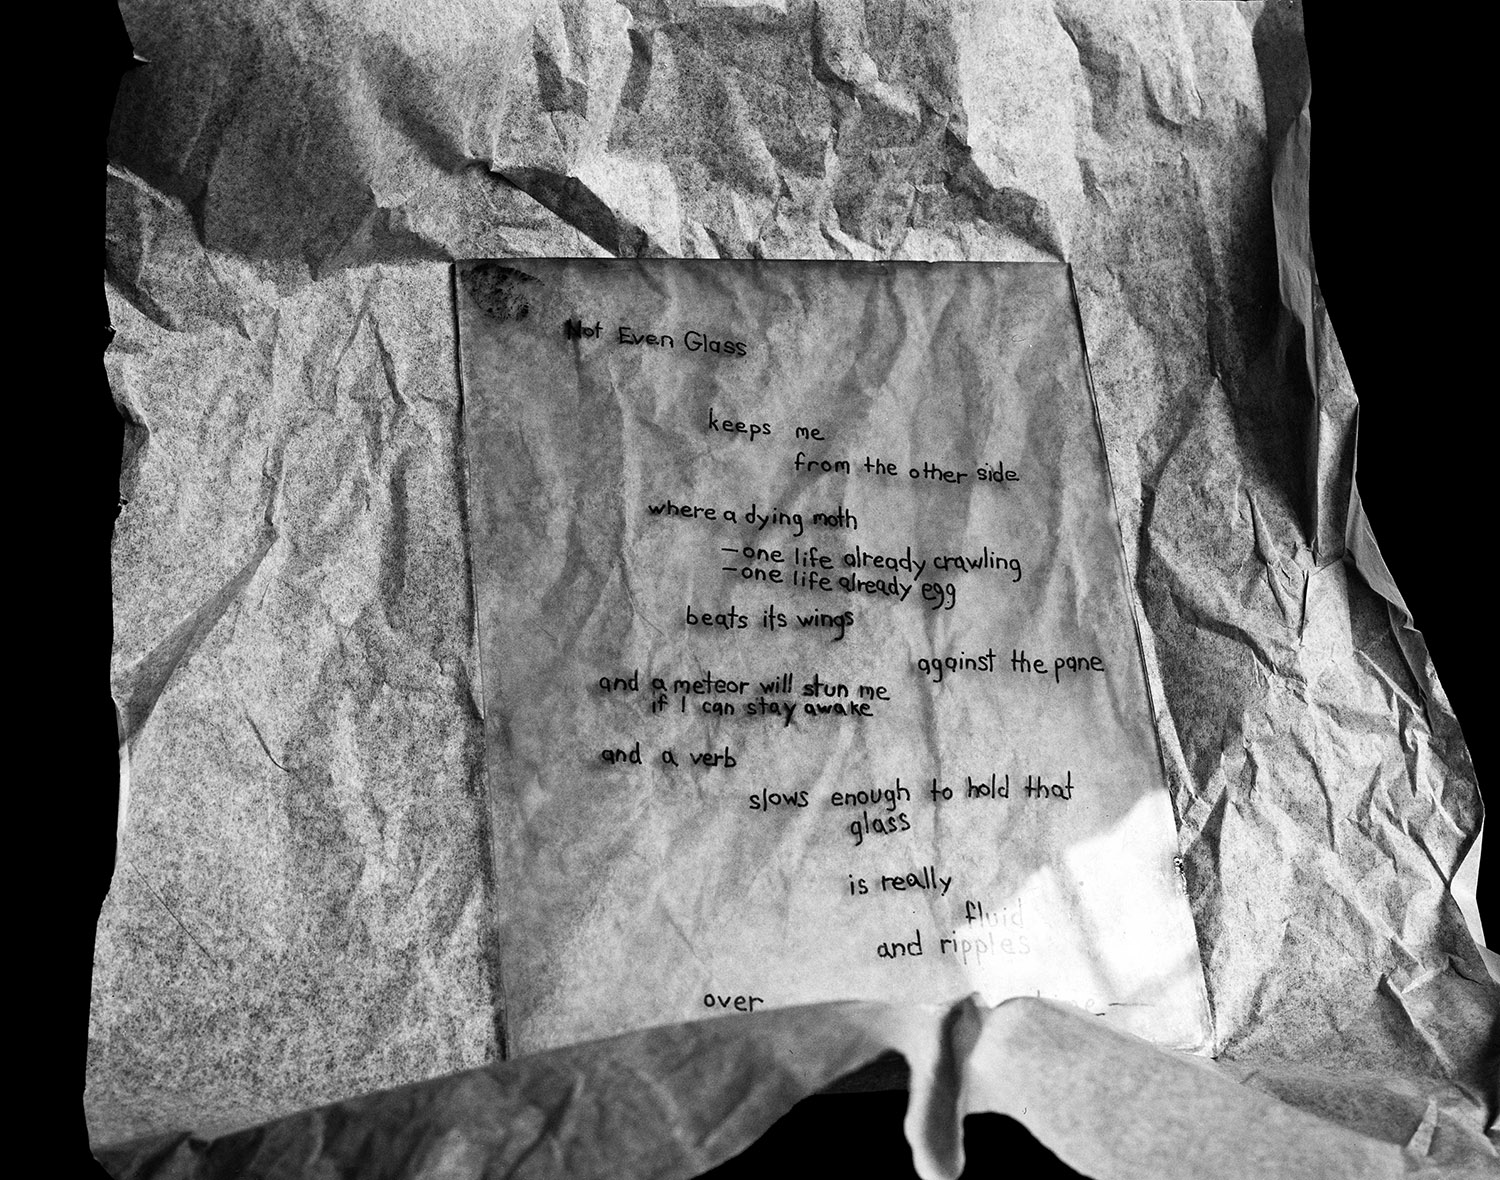 Not Even Glass
keeps me
from the other side
where a dying moth
—one life already crawling
—one life already egg
beats its wings
against the pane
and a meteor will stun me
if I can stay awake
and a verb
slows enough to hold that
glass
is really
fluid
and ripples
over